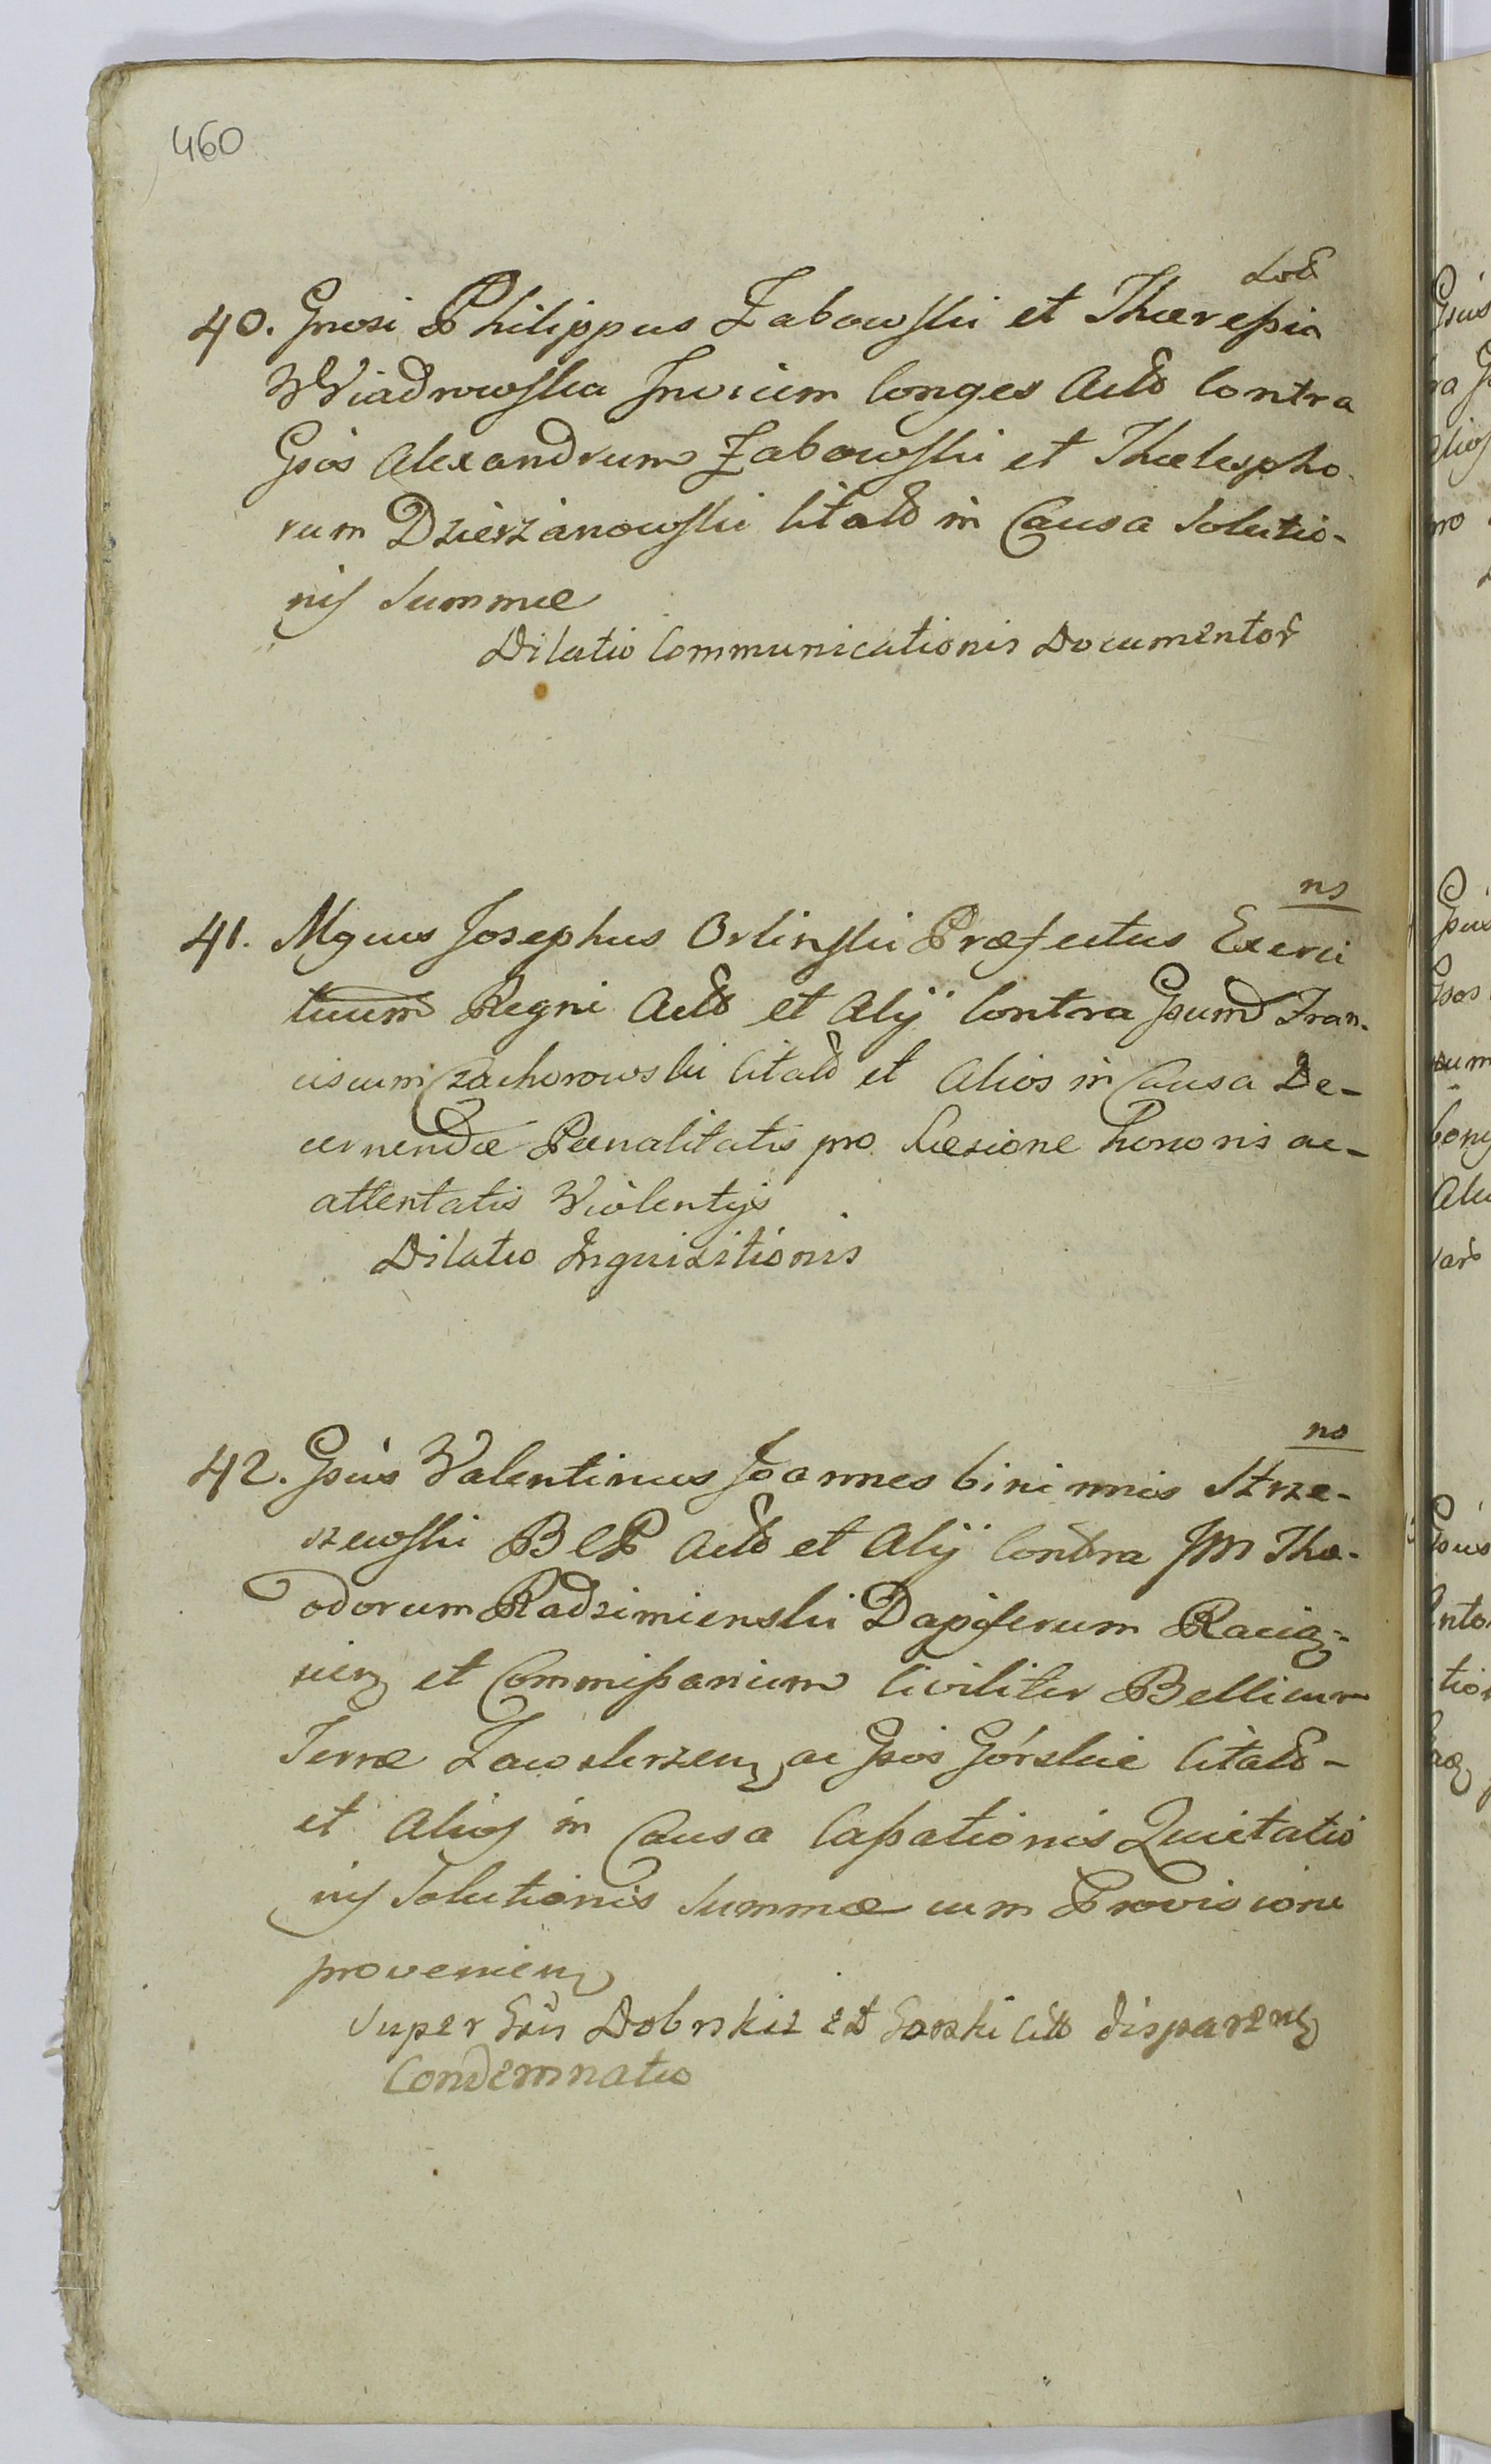 460
40. Gnosi Philippus Zabowski et Thæressia
Wiadrowska Invicem Conges Actō Contra
Gsos Alexandrum Zabowski et Thælespho-
rum Dzierzanowski Citatō in Causa Solutio-
nis Summæ
Dilatio Communicationis Documentor
ns
41. Mgnus Josephus Orlinski Præfectus Exerci
tuum Regni Actō et Alij Contra Gsum Fran-
ciscum Czachorowski Citatō et Alios in Causa De-
cernendæ Pænalitatis pro Læsione honoris ac-
attentatis Violentijs
Dilatio Inquisitionis
no
42. Gsus Valentinus Joannes binimnis Strze-
szewski B C P Actō et Alij Contra JM Theo-
odorum Radzimienski Dapiferum Raciąz-
nien et Commissarium Civiliter Bellicum
Terræ Zawskrzen ac Gsos Górskie Citatō-
et Alios in Causa Cassationis Quietatio
nis Solutionis Summæ cum Provisione
provenien
Super Gsis Dobrskie et Gorski Cittō disparen
Condemnatio